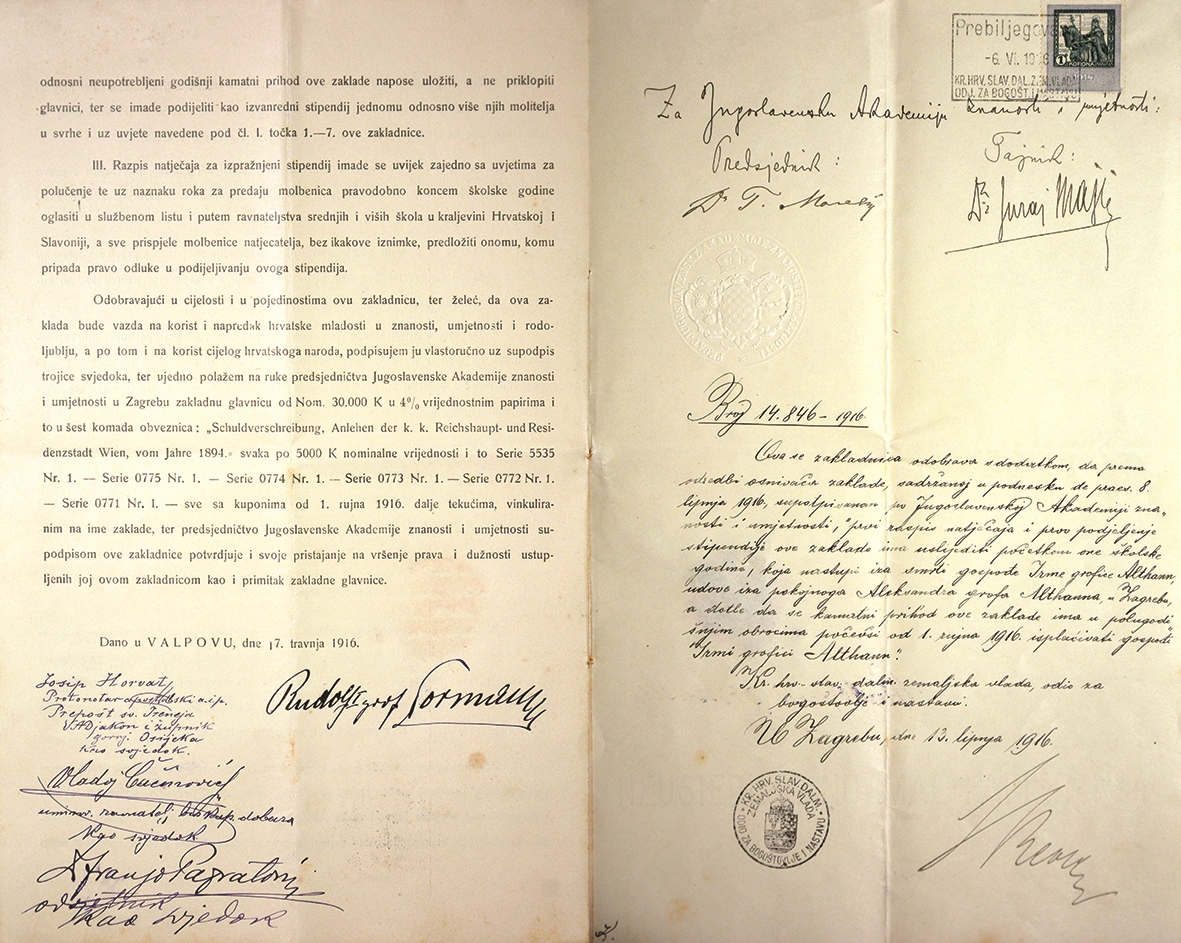 odnosni neupotrebljeni godišnji kamatni prihod ove zaklade napose uložiti, a ne priklopiti
glavnici, ter se imade podijeliti kao izvanredni stipendij jednomu odnosno više njih molitelja
u svrhe i uz uvjete navedene pod čl. I. točka 1.—7. ove zakladnice.
III. Razpis natječaja za izpražnjeni stipendij imade se uvijek zajedno sa uvjetima za
polučenje te uz naznaku roka za predaju molbenica pravodobno koncem školske godine
oglasiti u službenom listu i putem ravnateljstva srednjih i viših škola u kraljevini Hrvatskoj i
Slavoniji, a sve prispjele molbenice natjecatelja, bez ikakove iznimke, predložiti onomu, komu
pripada pravo odluke u podijeljivanju ovoga stipendija.
Odobravajući u cijelosti i u pojedinostima ovu zakladnicu, ter želeć, da ova za-
klada bude vazda na korist i napredak hrvatske mladosti u znanosti, umjetnosti i rodo-
ljublju, a po tom i na korist cijelog hrvatskoga naroda, podpisujem ju vlastoručno uz supodpis
trojice svjedoka, ter ujedno polažem na ruke predsjedničtva Jugoslavenske Akademije znanosti
i umjetnosti u Zagrebu zakladnu glavnicu od Nom. 30.000 K u 4% vrijednostnim papirima i
to u šest komada obveznica: „Schuldverschreibung, Anlehen der k. k. Reichshaupt- und Resi-
denzstadt Wien, vom Jahre 1894.“ svaka po 5000 K nominalne vrijednosti i to Serie 5535
Nr. 1. — Serie 0775 Nr. 1. — Serie 0774 Nr. 1. — Serie 0773 Nr. 1. — Serie 0772 Nr. 1.
— Serie 0771 Nr. 1. — sve sa kuponima od 1. rujna 1916. dalje tekućima, vinkulira-
nim na ime zaklade, ter predsjedničtvo Jugoslavenske Akademije znanosti i umjetnosti su-
podpisom ove zakladnice potvrdjuje i svoje pristajanje na vršenje prava i dužnosti ustup-
ljenih joj ovom zakladnicom kao i primitak zakladne glavnice.
Dano u VALPOVU, dne 17. travnja 1916.
Josip Horvat,
Protonotar apostolski a.i.p.
Prepošt sv. Ireneja
VADjakon i župnik
gornj. Osijeka
kao svjedok.
Rudolf grof Normann
kao svjedok
Dr Franjo Papratović
odvjetnik
kao svjedok
Prebiljegovano
-6. VI. 1916
KR. HRV. SLAV. DAL. ZEM. VLADA
ODJ. ZA BOGOŠT. I NASTAVU
1 KORONA
Za Jugoslavensku Akademiju znanosti i umjetnosti:
Predsjednik:
Tajnik:
Dr T. Maretić
Dr Juraj Majić
Broj 14.846 – 1916.
Ova se zakladnica odobrava s dodatkom, da prema
odredbi osnivača zaklade, sadržanoj u podnesku de praes. 8.
lipnja 1916, supotpisanom po Jugoslavenskoj Akademiji zna-
nosti i umjetnosti, "prvi raspis natječaja i prvo podjeljenje
stipendije ove zaklade ima uslijediti početkom one školske
godine, koja nastupi iza smrti gospođe Irme grofice Althann,
udove iza pokojnoga Aleksandra grofa Althanna, u Zagrebu,
a dotle da se kamatni prihod ove zaklade ima u polugodi-
šnjim obrocima počevši od 1. rujna 1916. isplaćivati gospođi
Irmi grofici Althann".
Kr. hrv. slav. dalm. zemaljska vlada, odio za
bogoštovlje i nastavu.
U Zagrebu, dne 13. lipnja 1916.
KR. HRV. SLAV. DALM.
ZEMALJSKA VLADA
ODIO ZA BOGOŠTOVJE I NASTAVU